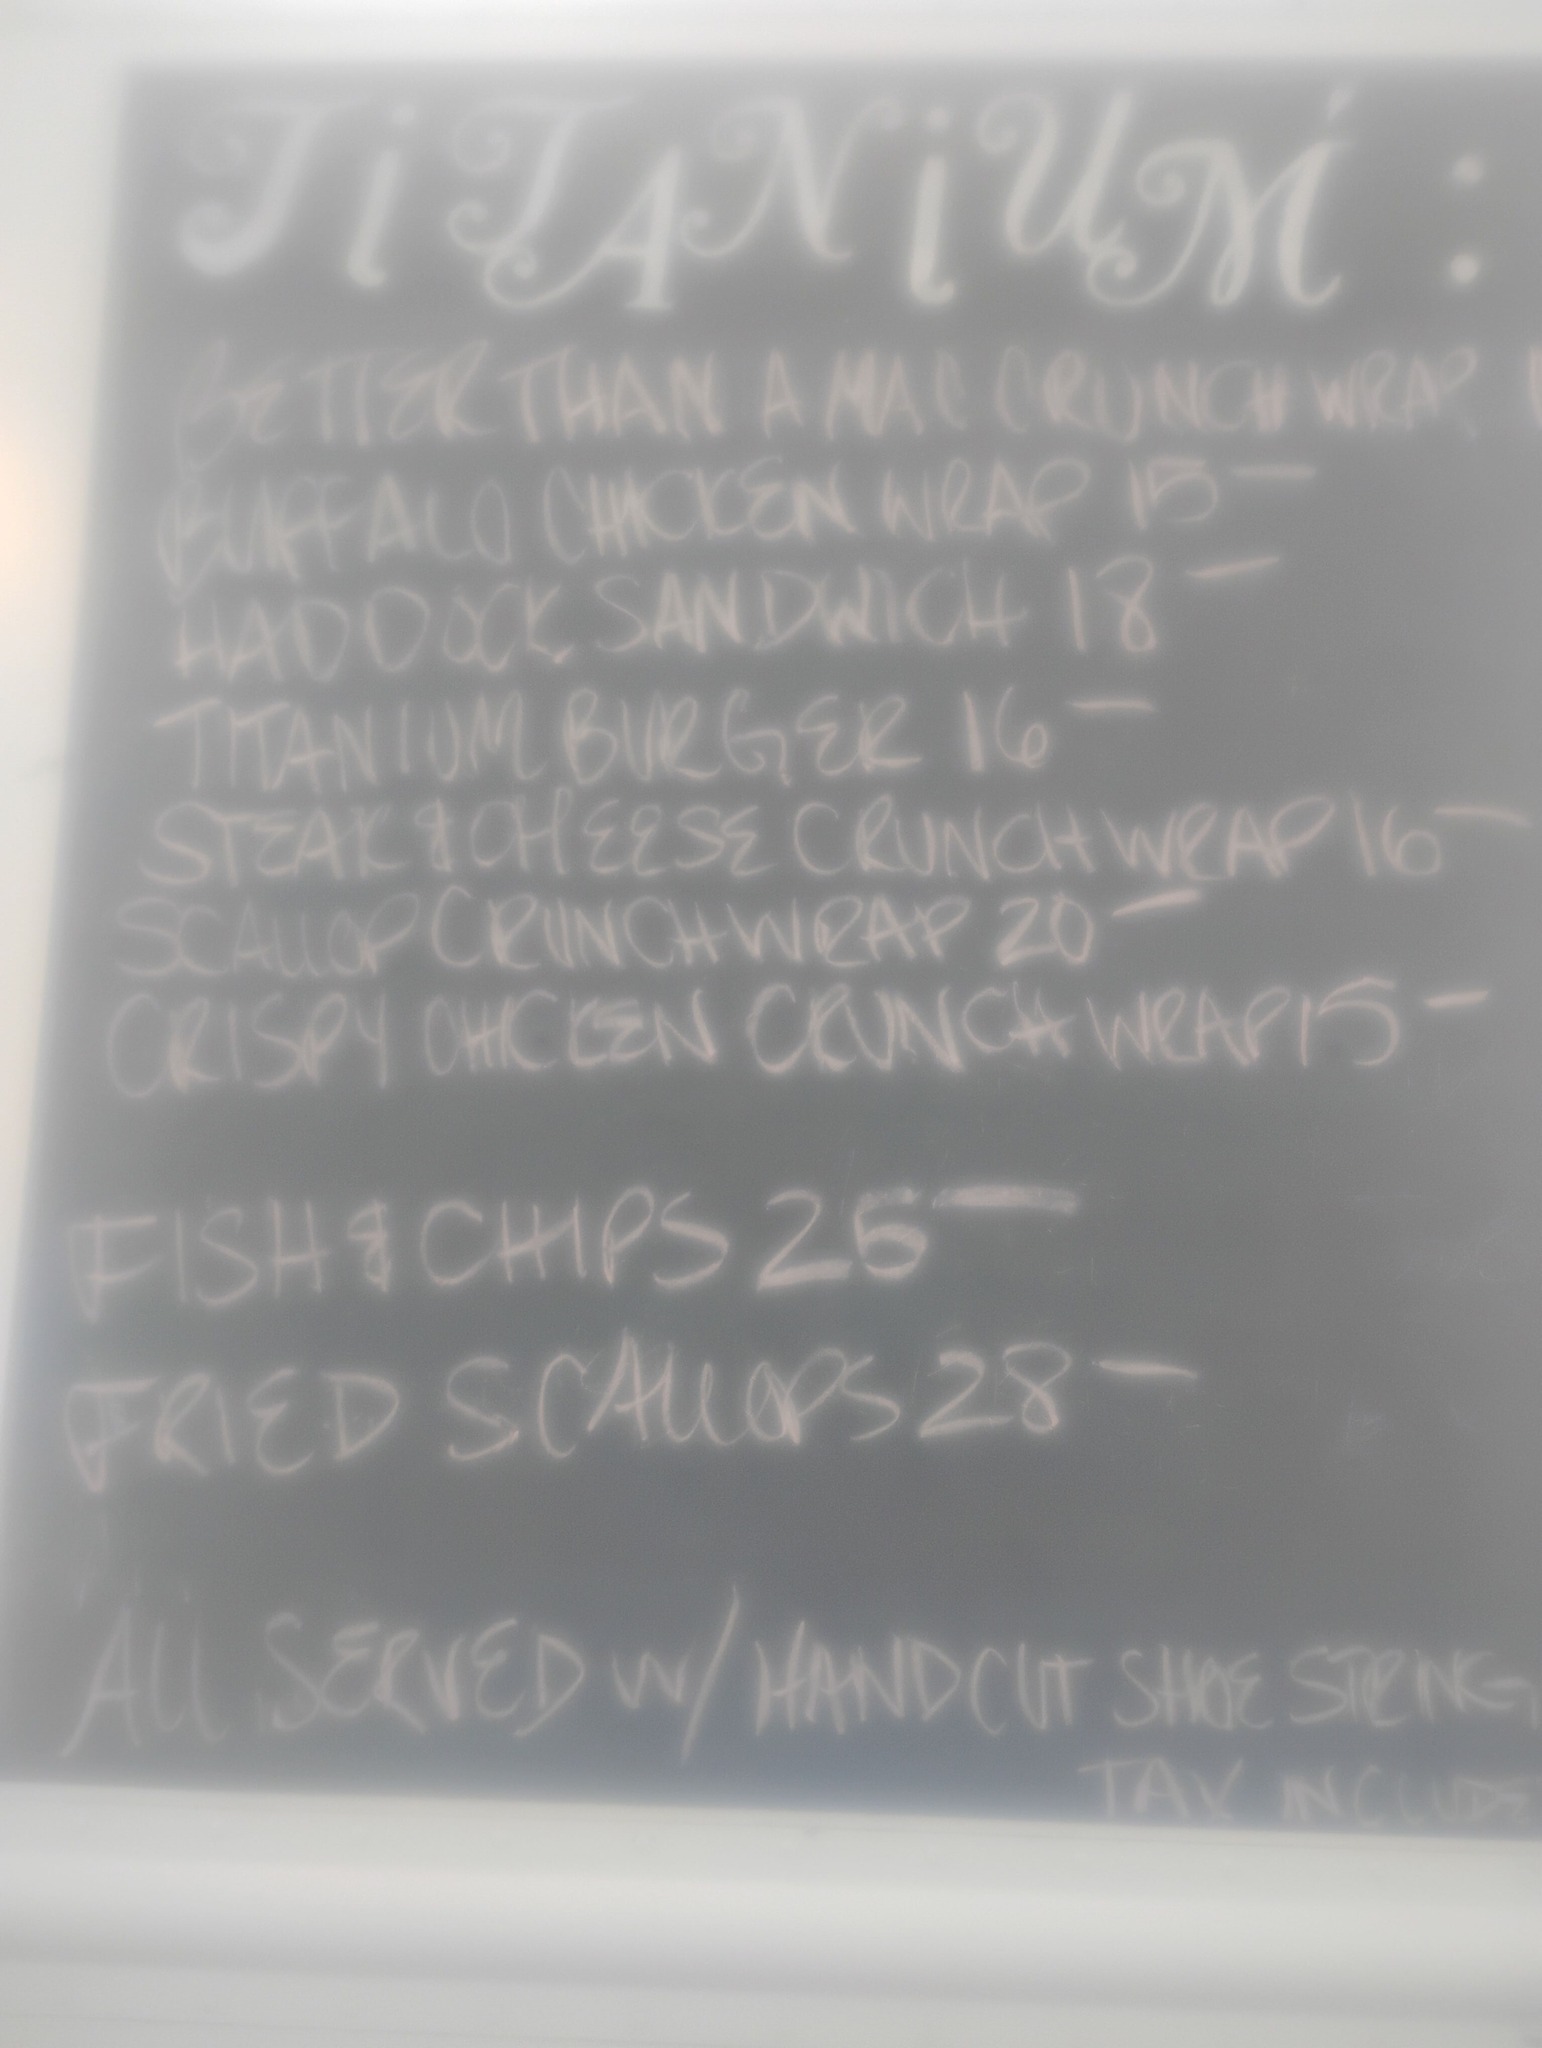 TiTANiUM:
BETTER THAN A MAC CRUNCHWRAP
BUFFALO CHICKEN WRAP 15—
HADDOCK SANDWICH 18—
TITANIUM BURGER 16—
STEAK & CHEESE CRUNCHWRAP 16—
SCALLOP CRUNCHWRAP 20—
CRISPY CHICKEN CRUNCHWRAP 15—
FISH & CHIPS 25—
FRIED SCALLOPS 28—
All SERVED W/ HANDCUT SHOE STRING
TAX INCLUDE